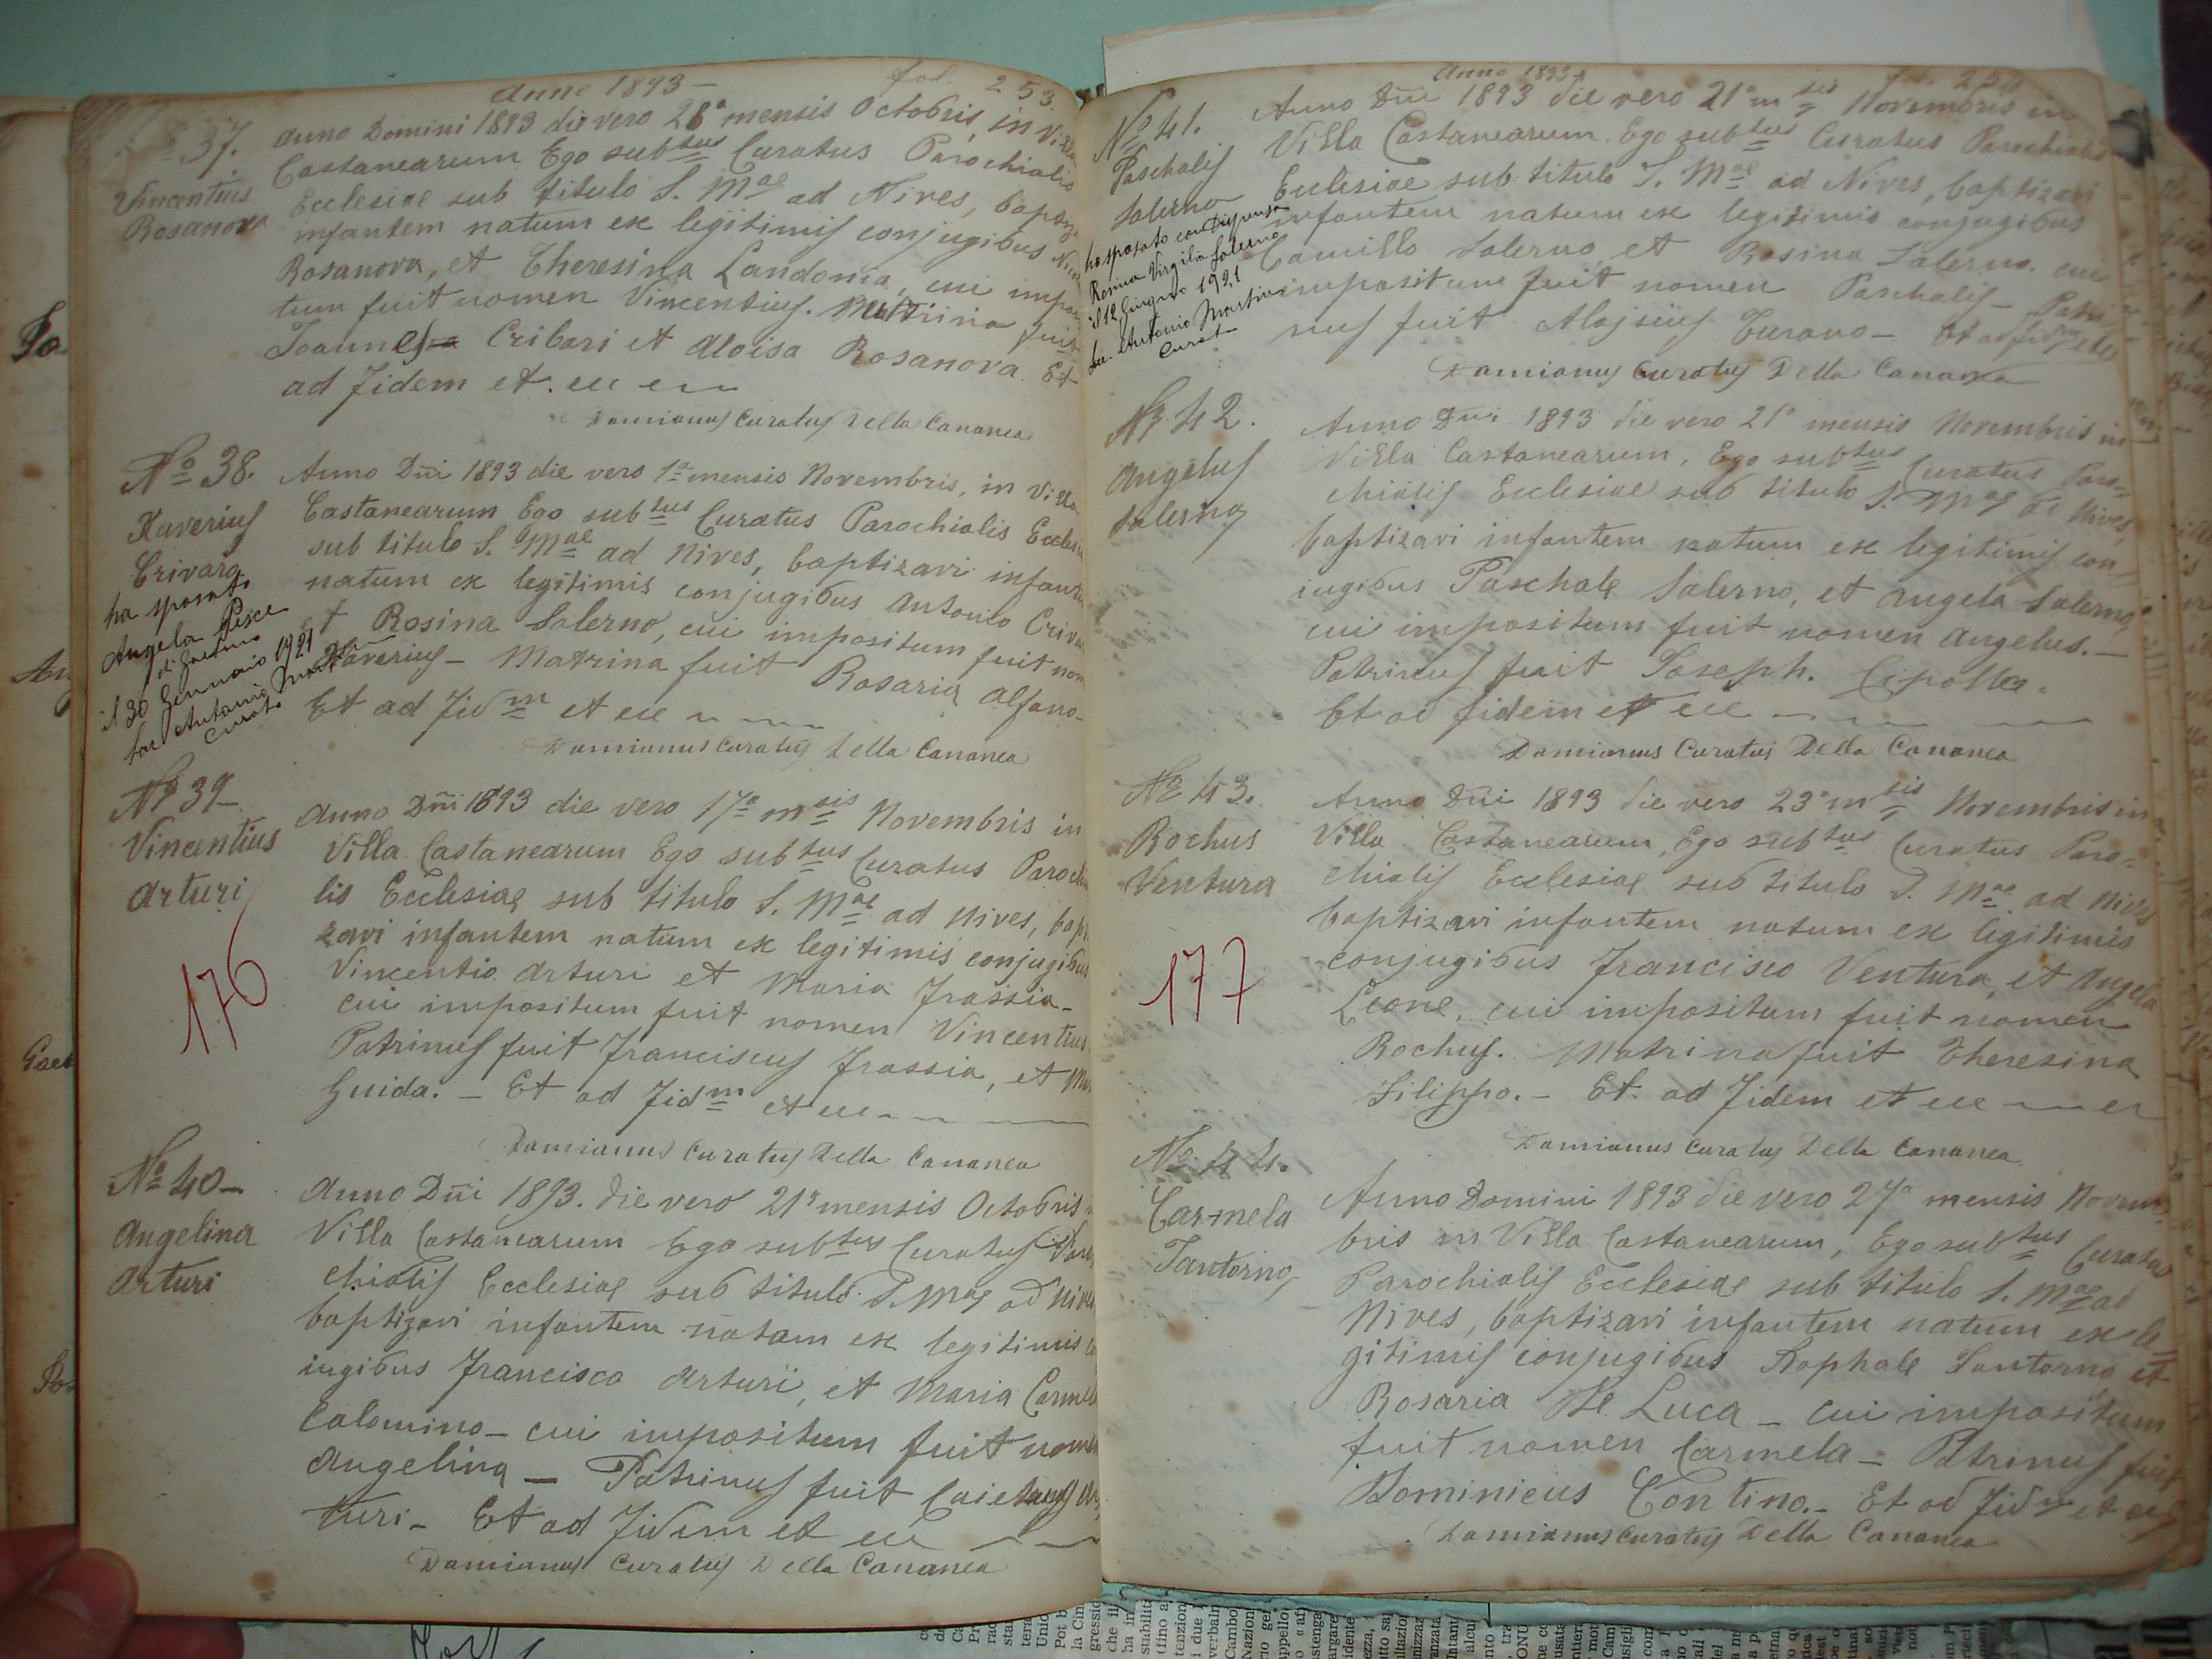 Anno 1893 – fol. 253.
37.
Vincentius
Rosanova
Anno Domini 1893 die vero 28ª mensis Octobris, in Villa
Castanearum Ego subtus Curatus Parochialis
Ecclesiae sub titulo S. Mae ad Nives, bapti
infantem natum ex legitimis conjugibus
Rosanova, et Theresina Landonia, cui impo
tum fuit nomen Vincentius. Matrina fuit
Joannes Cribari et Aloisa Rosanova. Et
ad fidem et.
Damianus Curatus Della Cananea
Nº 38.
Xaverius
Crivaro
ha sposato
Angela Pesce
di Gaetano
il 30 Gennaio 1921
Sac Antonio
Curato
Anno Dñi 1893 die vero 1ª mensis Novembris, in Villa
Castanearum Ego subtus Curatus Parochialis Eccles
sub titulo S. Mae ad Nives, baptizavi infante
natum ex legitimis conjugibus Antonio Criva
et Rosina Salerno, cui impositum fuit nom
Xaverius – Matrina fuit Rosaria Alfano –
Et ad fidm et
Damianus Curatus Della Cananea
Nº 39 –
Vincentius
Arturi
176
Anno Dñi 1893 die vero 17ª msis Novembris in
Villa Castanearum Ego subtus Curatus Paroch
lis Ecclesiae sub titulo S. Mae ad Nives, bapt
zavi infantem natum ex legitimis conjugibus
Vincentio Arturi et Maria Frassia –
cui impositum fuit nomen Vincentius.
Patrinus fuit Franciscus Frassia, et M
Guida. – Et ad fidm et
Damianus Curatus Della Cananea
Nº 40 –
Angelina
Arturi
Anno Dñi 1893. die vero 21ª mensis Octobris
Villa Castanearum Ego subtus Curatus Paro
chialis Ecclesiae sub titulo S. Mae ad Nives
baptizavi infantem natam ex legitimis
iugibus Francisco Arturi, et Maria Carmela
Calomino – cui impositum fuit nomen
Angelina – Patrinus fuit Caietanus Ar
turi – Et ad fidem et
Damianus Curatus Della Cananea
Anno 1893 fol. 254
Nº 41.
Paschalis
Salerno
ha sposato con Dispensa
Virgilia Salerno
il 12 Giugno 1921
Sac. Antonio
Curato
Anno Dñi 1893 die vero 21ª msis Novembris in
Villa Castanearum. Ego subtus Curatus Parochialis
Ecclesiae sub titulo S. Mae ad Nives, baptizavi
infantem natum ex legitimis conjugibus
Camillo Salerno, et Rosina Salerno. cui
impositum fuit nomen Paschalis – Patri-
nus fuit Alojsius Turano – Et ad fidm et
Damianus Curatus Della Cananea
Nº 42.
Angelus
Salerno
Anno Dñi 1893 die vero 21ª mensis Novembris in
Villa Castanearum, Ego subtus Curatus Paro-
chialis Ecclesiae sub titulo S. Mae ad Nives,
baptizavi infantem natum ex legitimis con-
iugibus Paschale Salerno, et Angela Salerno,
cui impositum fuit nomen Angelus. –
Patrinus fuit Joseph. Cipolla.
Et ad fidem et
Damianus Curatus Della Cananea
Nº 43.
Rochus
Ventura
177
Anno Dñi 1893 die vero 23ª msis Novembris in
Villa Castanearum, Ego subtus Curatus Paro-
chialis Ecclesiae sub titulo S. Mae ad Nives
baptizavi infantem natum ex legitimis
conjugibus Francisco Ventura, et Angela
Leone, cui impositum fuit nomen
Rochus. Matrina fuit Theresina
Filippo. – Et ad fidem et
Damianus Curatus Della Cananea
Nº 44.
Carmela
Santorno
Anno Domini 1893 die vero 27ª mensis Novem-
bris in Villa Castanearum, Ego subtus Curatus
Parochialis Ecclesiae sub titulo S. Mae ad
Nives, baptizavi infantem natum ex le-
gitimis conjugibus Raphale Santorno et
Rosaria De Luca – cui impositum
fuit nomen Carmela – Patrinus fuit
Dominicus Contino. – Et ad fidm et
Damianus Curatus Della Cananea